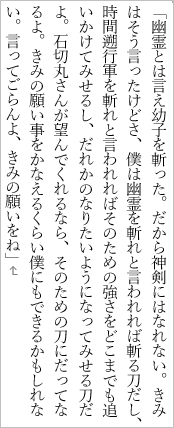 「幽霊とは言え幼子を斬った。だから神剣にはなれない。きみ
はそう言ったけどさ、僕は幽霊を斬れと言われれば斬る刀だし、
時間遡行軍を斬れと言われればそのための強さをどこまでも追
いかけてみせるし、だれかのなりたいようになってみせる刀だ
よ。石切丸さんが望んでくれるなら、そのための刀にだってな
るよ。きみの願い事をかなえるくらい僕にもできるかもしれな
い。言ってごらんよ、きみの願いをね」↑